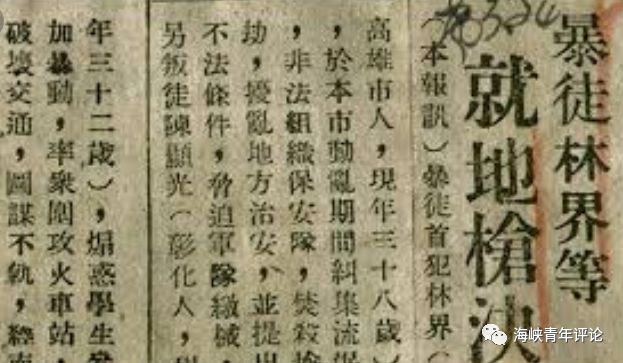 暴徒林界等
就地槍決
（本報訊）暴徒首犯林界（
高雄市人，現年三十八歲）
，於本市動亂期間糾集流氓
，非法組織保安隊，焚殺搶
劫，擾亂地方治安，並提出
不法條件，脅迫軍隊繳械，
另叛徒陳顯光（彰化人，現
年三十二歲），煽惑學生參
加暴動，率衆圍攻火車站，
破壞交通，圖謀不軌，經
海峡青年评论